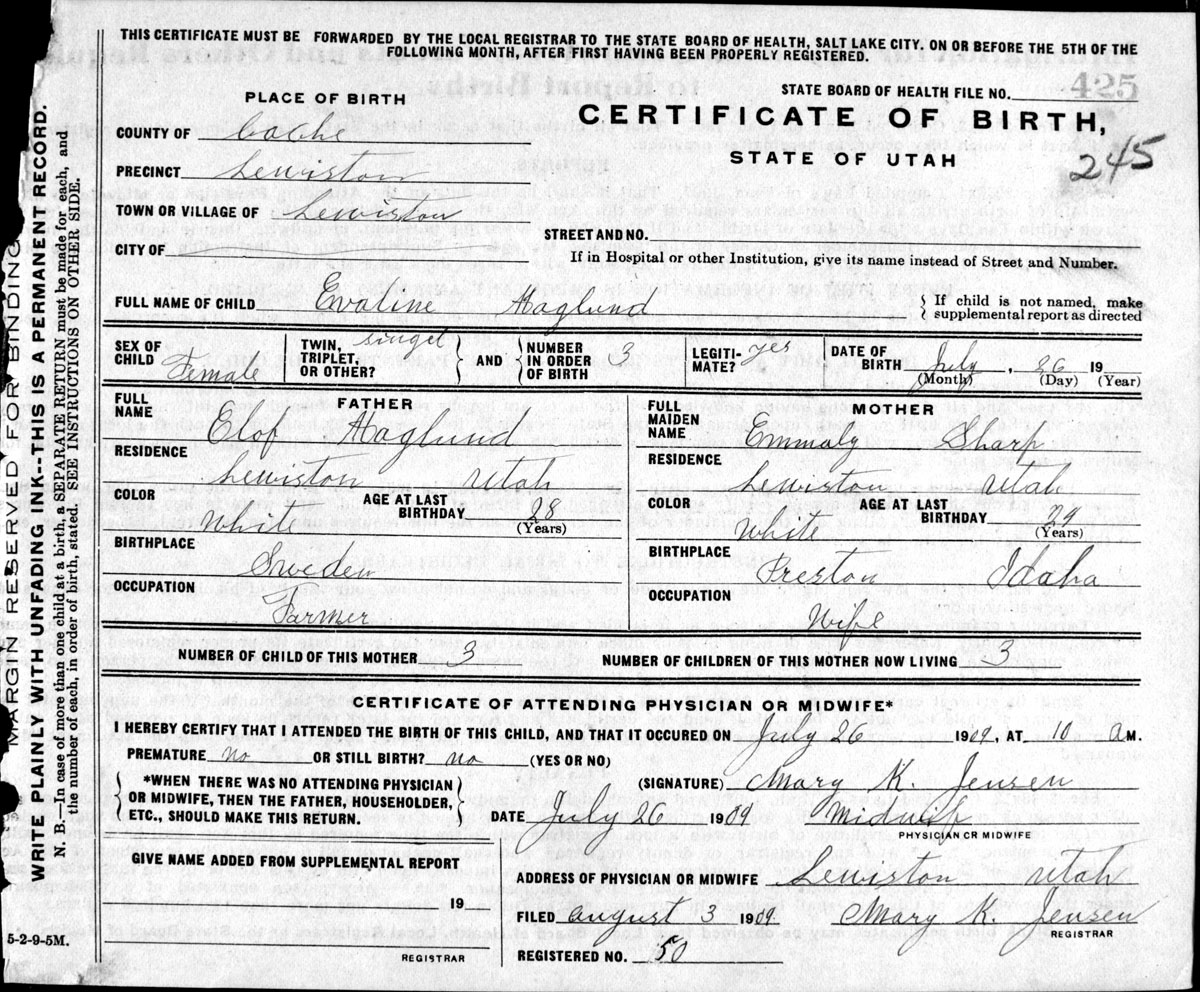 THIS CERTIFICATE MUST BE FORWARDED BY THE LOCAL REGISTRAR TO THE STATE BOARD OF HEALTH, SALT LAKE CITY. ON OR BEFORE THE 5TH OF THE
FOLLOWING MONTH, AFTER FIRST HAVING BEEN PROPERLY REGISTERED.
STATE BOARD OF HEALTH FILE NO. 425
PLACE OF BIRTH
CERTIFICATE OF BIRTH,
STATE OF UTAH
245
COUNTY OF Cach
PRECINCT Lewiston
TOWN OR VILLAGE OF Lewiston
CITY OF
STREET AND NO.
If in Hospital or other Institution, give its name instead of Street and Number.
FULL NAME OF CHILD Evaline Haglund
If child is not named, make
supplemental report as directed
SEX OF CHILD Female
TWIN, TRIPLET, OR OTHER? singel
AND
NUMBER IN ORDER OF BIRTH 3
LEGITI-MATE? yes
DATE OF BIRTH July, 26 19
(Month) (Day) (Year)
FATHER
FULL NAME Elof Haglund
RESIDENCE
Lewiston Utah
COLOR White
AGE AT LAST BIRTHDAY 28
(Years)
BIRTHPLACE
Sweden
OCCUPATION
Farmer
MOTHER
FULL MAIDEN NAME Emmaly Sharp
RESIDENCE
Lewiston Utah
COLOR White
AGE AT LAST BIRTHDAY 24
(Years)
BIRTHPLACE
Preston Idaha
OCCUPATION
Wife
NUMBER OF CHILD OF THIS MOTHER 3
NUMBER OF CHILDREN OF THIS MOTHER NOW LIVING 3
CERTIFICATE OF ATTENDING PHYSICIAN OR MIDWIFE*
I HEREBY CERTIFY THAT I ATTENDED THE BIRTH OF THIS CHILD, AND THAT IT OCCURED ON July 26 1909, AT 10 a M.
PREMATURE no OR STILL BIRTH? no (YES OR NO)
*WHEN THERE WAS NO ATTENDING PHYSICIAN
OR MIDWIFE, THEN THE FATHER, HOUSEHOLDER,
ETC., SHOULD MAKE THIS RETURN.
(SIGNATURE) Mary K. Jensen
DATE July 26 1909 Midwife
PHYSICIAN OR MIDWIFE
GIVE NAME ADDED FROM SUPPLEMENTAL REPORT
19
REGISTRAR
ADDRESS OF PHYSICIAN OR MIDWIFE Lewiston Utah
FILED August 3 1909. Mary K. Jensen
REGISTRAR
REGISTERED NO. 50
5-2-9-5M.
MARGIN RESERVED FOR BINDING
WRITE PLAINLY WITH UNFADING INK--THIS IS A PERMANENT RECORD.
N. B.—In case of more than one child at a birth, a SEPARATE RETURN must be made for each, and
the number of each, in order of birth, stated. SEE INSTRUCTIONS ON OTHER SIDE.